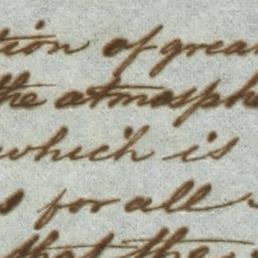 tion of grea
the atmosphe
which is
s for all
that the